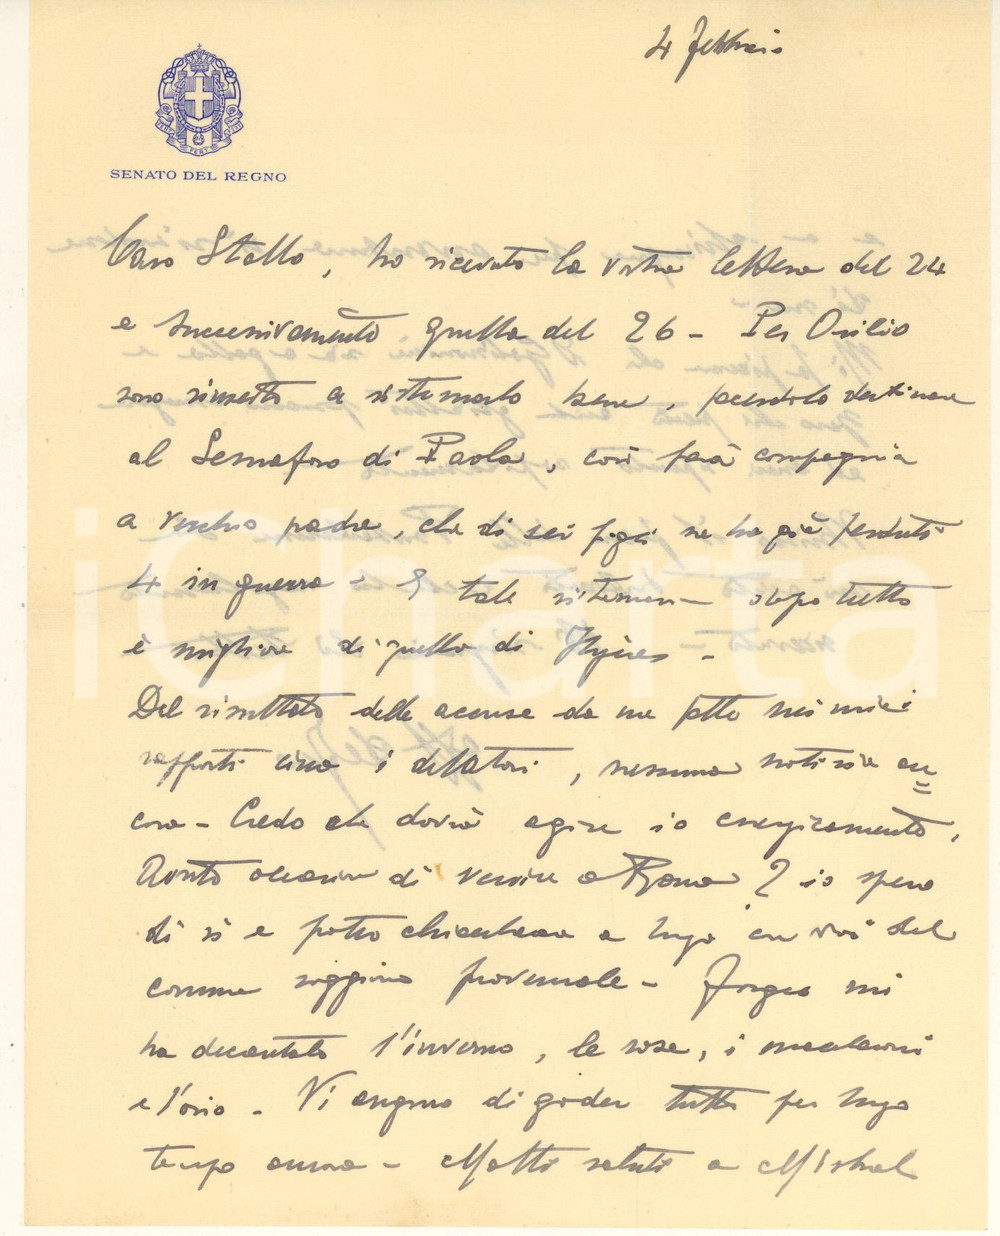 4 Febbraio
SENATO DEL REGNO
Caro Stallo, ho ricevuto la vostra lettera del 24
e successivamente quella del 26 - Per Osilio
sono riuscito a sistemarlo bene, facendolo destinare
al Semaforo di Paola, così farà compagnia
a vecchio padre, che di sei figli ne ha già perduti
4 in guerra - E tale sistemazione dopo tutto
è migliore di quella di Hyères -
Del risultato delle accuse da me fatte nei miei
rapporti circa i delatori, nessuna notizia an
cora - Credo che dovrà agire io energicamente,
Avrete occasione di venire a Roma? io spero
di si e potrò chiacchierare a lungo con voi del
comune soggiorno provenzale - mi
ha decantato l'inverno, le rose, i
e l'ozio - Vi auguro di goder tutto per lungo
tempo ancora - Molti saluti a Mistral
iCharta